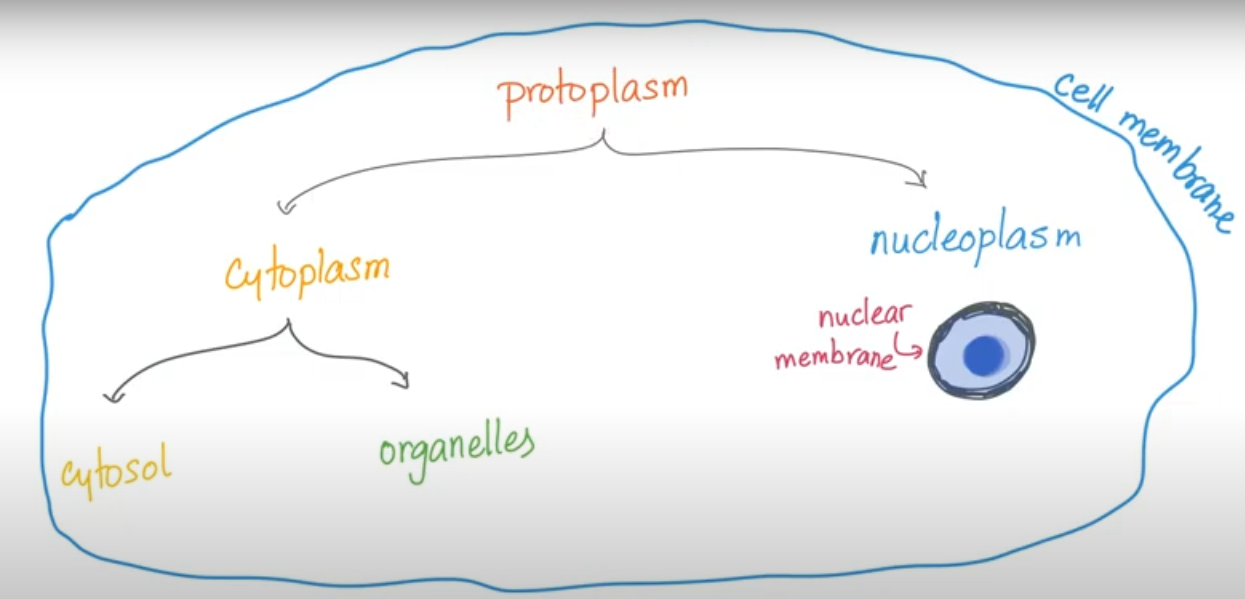 Protoplasm
cell membrane
nucleoplasm
Cytoplasm
nuclear
membrane
cytosol
organelles